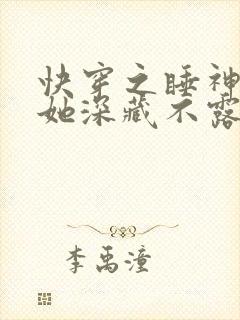 快穿之睡神
她深藏不露
李禹潼